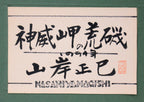 神威岬の荒磯
山岸正巳
MASAMI YAMAGISHI